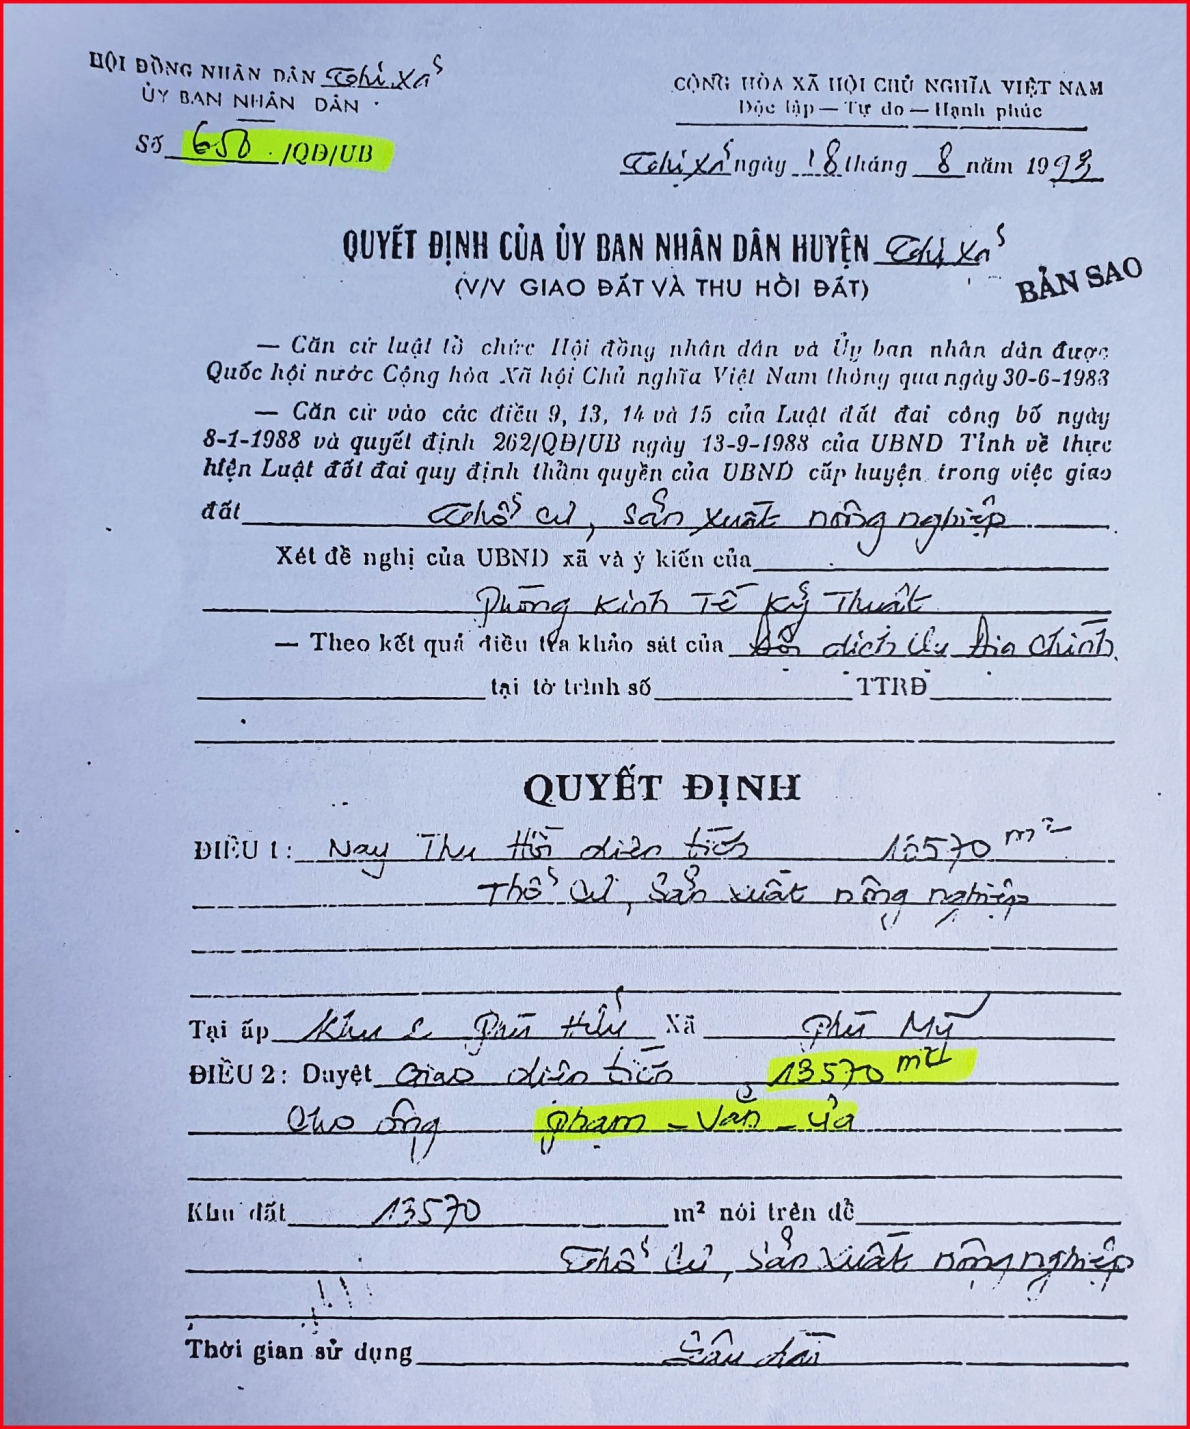 HỘI ĐỒNG NHÂN DÂN Thị Xã
ỦY BAN NHÂN DÂN
Số 650 /QĐ/UB
CỘNG HÒA XÃ HỘI CHỦ NGHĨA VIỆT NAM
Độc lập — Tự do — Hạnh phúc
Thị Xã ngày 18 tháng 8 năm 1993
QUYẾT ĐỊNH CỦA ỦY BAN NHÂN DÂN HUYỆN Thị Xã
(V/V GIAO ĐẤT VÀ THU HỒI ĐẤT)
BẢN SAO
— Căn cứ luật tổ chức Hội đồng nhân dân và Ủy ban nhân dân được
Quốc hội nước Cộng hòa Xã hội Chủ nghĩa Việt Nam thông qua ngày 30-6-1983
— Căn cứ vào các điều 9, 13, 14 và 15 của Luật đất đai công bố ngày
8-1-1988 và quyết định 262/QĐ/UB ngày 13-9-1988 của UBND Tỉnh về thực
hiện Luật đất đai quy định thẩm quyền của UBND cấp huyện trong việc giao
đất Thổ cư, sản xuất nông nghiệp
Xét đề nghị của UBND xã và ý kiến của
Phòng Kinh Tế Kỹ Thuật
— Theo kết quả điều tra khảo sát của Đội dịch vụ Địa Chính
tại tờ trình số TTRĐ
QUYẾT ĐỊNH
ĐIỀU 1: Nay Thu Hồi diện tích 13570 m²
Thổ Cư, Sản xuất nông nghiệp
Tại ấp Khu 2 Phú Hữu Xã Phú Mỹ
ĐIỀU 2: Duyệt Giao diện tích 13570 m2
Cho ông Phạm - Văn - Ửa
Khu đất 13570 m² nói trên để
Thổ Cư, Sản xuất nông nghiệp
Thời gian sử dụng Lâu dài